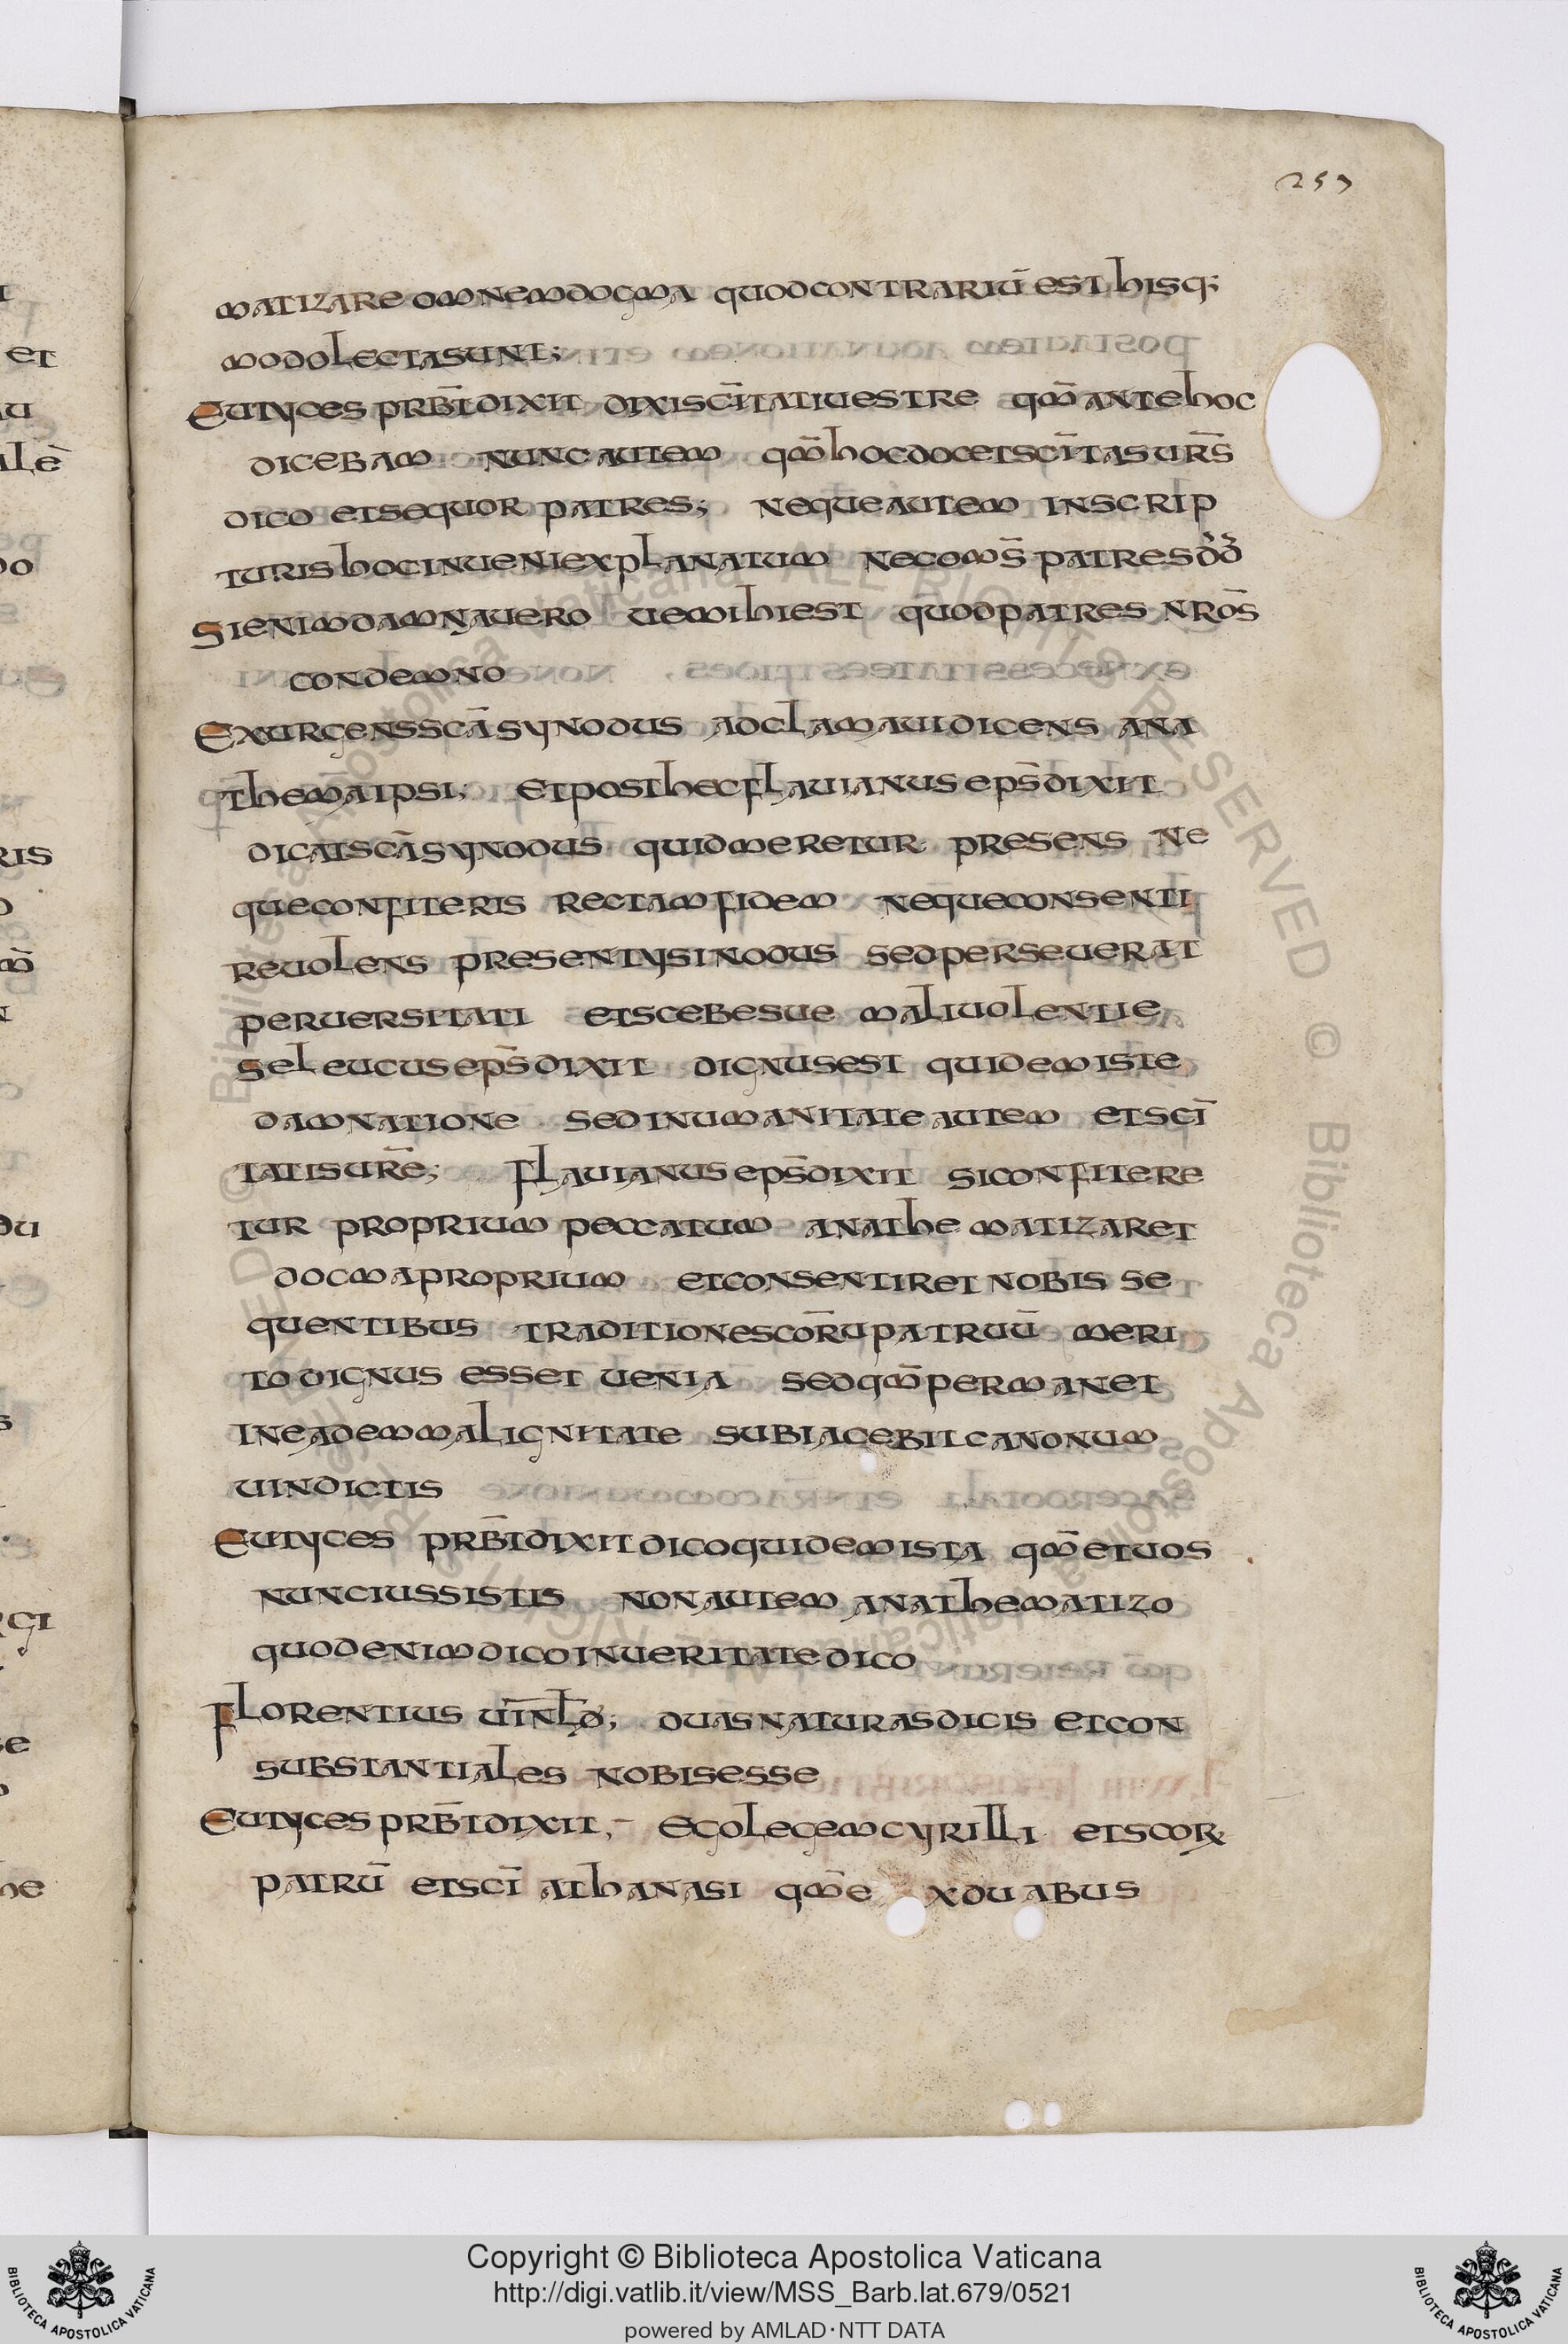 257
matizare omnem dogma quod contrariū est hisq;
modo lectasunt;
Eutyces prb̄t dixit dixi scītati uestre qm̄ ante hoc
dicebam nunc autem qm̄ hoc docet scītas ur̄s
dico et sequor patres; neque autem in scrip
turis hoc inueni explanatum nec oms̄ patres d̄d̄
Si enim damnauero ue mihi est quod patres nrōs
condemno
Exurgens scā synodus adclamaui dicens ana
thema ipsi; et post hec flauianus eps̄ dixit
dicat scā synodus quid meretur presens ne
que confiteris rectam fidem neque consenti
re uolens presenty sinodus sed perseuerat
peruersitati et scebe sue maliuolentie
Seleucus eps̄ dixit dignus est quidem iste
damnatione sed inumanitate autem et scī
tatis ur̄e; flauianus eps̄ dixit si confitere
tur proprium peccatum anathematizaret
docma proprium et consentiret nobis se
quentibus traditione scōru patruū meri
to dignus esset uenia sed qm̄ permanet
in eadem malignitate subiacebit canonum
uindictis
Eutyces prb̄t dixit dico quidem ista qm̄ et uos
nunc iussistis non autem anathematizo
quod enim dico in ueritate dico
Florentius uīnl̄d; duas naturas dicis et con
substantiales nobis esse
Eutyces prb̄t dixit, ego legem cyrilli et scoꝝ
patrū et scī athanasi qm̄ e x duabus
Copyright © Biblioteca Apostolica Vaticana
http://digi.vatlib.it/view/MSS_Barb.lat.679/0521
powered by AMLAD·NTT DATA